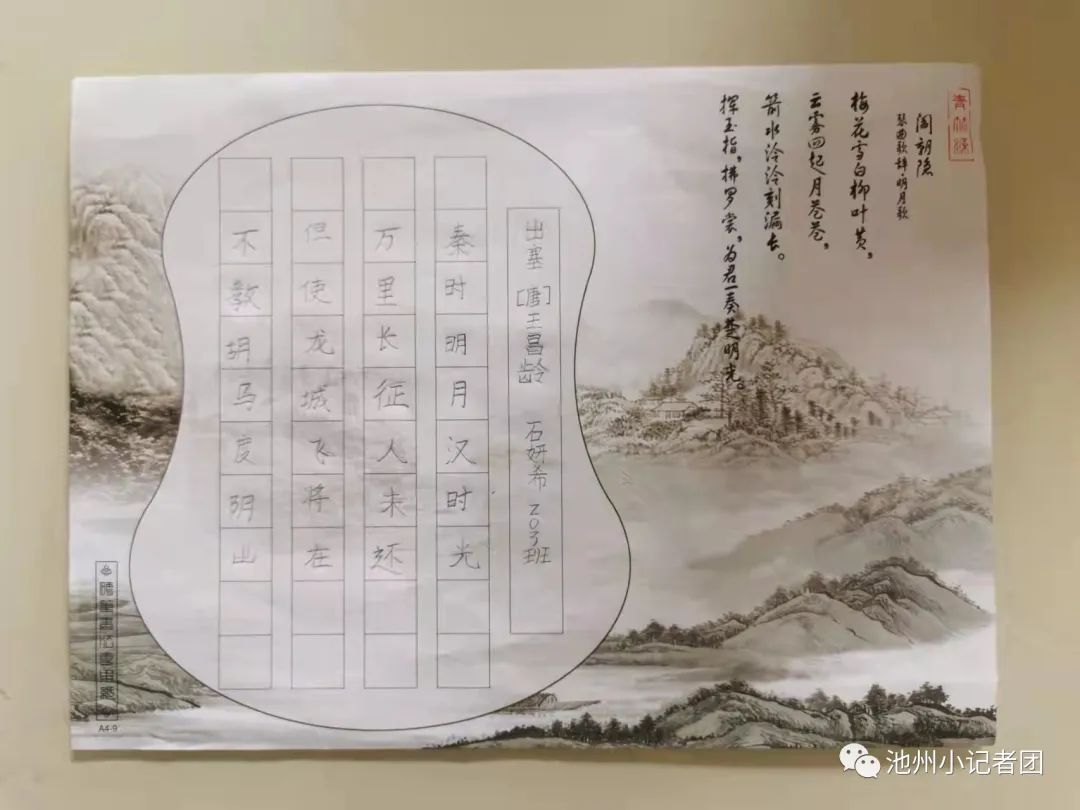 阎朝隐
琴曲歌辞·明月歌
梅花雪白柳叶黄，
云雾四起月苍苍。
箭水泠泠刻漏长。
挥玉指，拂罗裳，为君一奏楚明光。
出塞 [唐]王昌龄 石妍希 203班
秦时明月汉时光
万里长征人未还
但使龙城飞将在
不教胡马度阴山
A4-9
池州小记者团